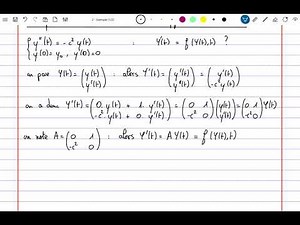 { y''(t) = -c² y(t)
y(0) = y₀, y'(0) = 0 : Y'(t) = f(Y(t),t) ?
on pose Y(t) = (y(t) y'(t)) : alors Y'(t) = (y'(t) y''(t)) = (y'(t) -c² y(t))
on a donc Y'(t) = (0. y(t) + 1. y'(t) -c². y(t) + 0. y'(t)) = (0 1 -c² 0)(y(t) y'(t)) = (0 1 -c² 0) Y(t)
on note A = (0 1 -c² 0) : alors Y'(t) = A Y(t) = f(Y(t),t)